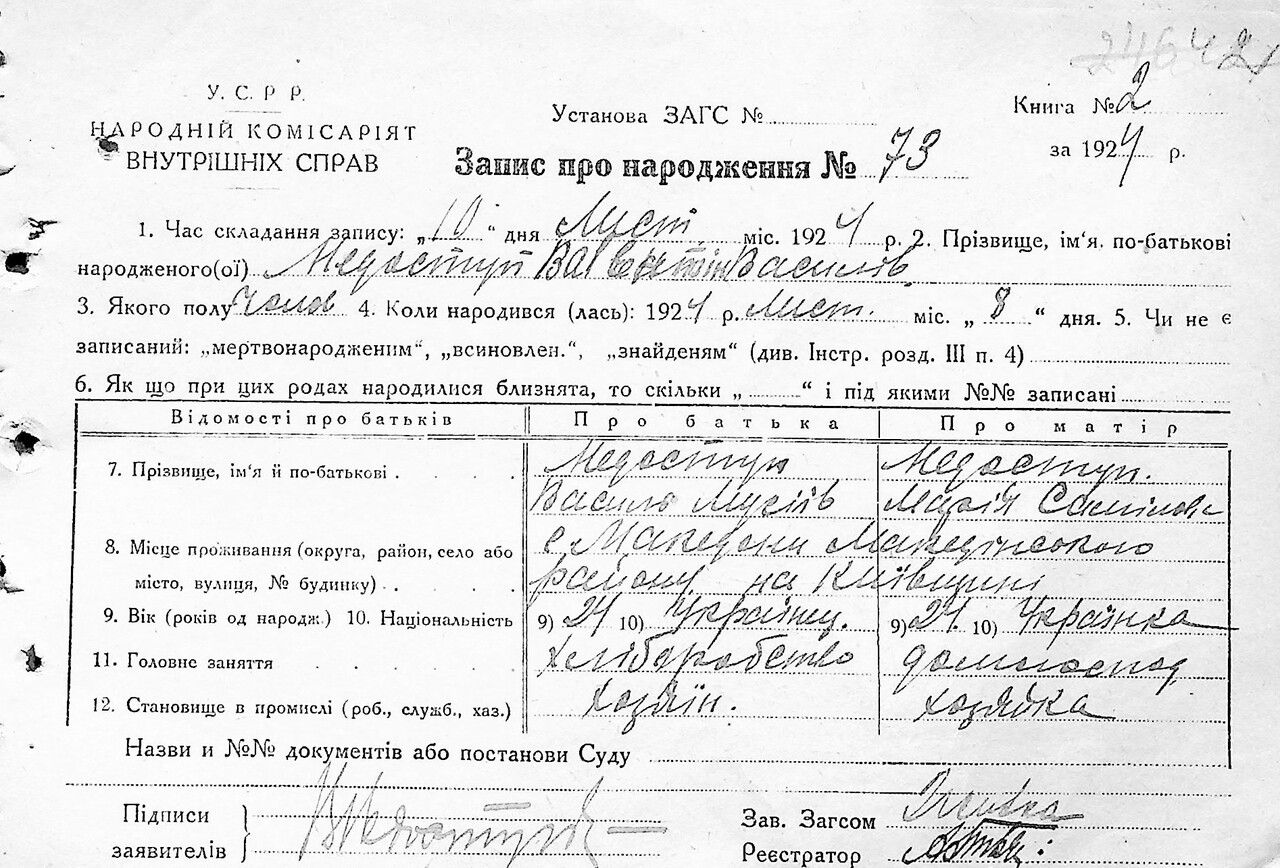 24642
У. С. Р. Р.
НАРОДНІЙ КОМІСАРІЯТ
ВНУТРІШНІХ СПРАВ
Установа ЗАГС №
Книга № 2
за 1924 р.
Запис про народження № 73
1. Час складання запису: „10“ дня Лист міс. 1924 р. 2. Прізвище, ім'я, по-батькові
народженого(ої) Недоступ Валентін Василів
3. Якого полу Чолов 4. Коли народився (лась): 1924 р. Лист. міс. „8“ дня. 5. Чи не є
записаний: „мертвонародженим“, „всиновлен.“, „знайденям“ (див. Інстр. розд. III п. 4)
6. Як що при цих родах народилися близнята, то скільки „ “ і під якими №№ записані
Відомості про батьків Про батька Про матір
7. Прізвище, ім'я й по-батькові Недоступ Недоступ.
Василь Мусіїв Марія
8. Місце проживання (округа, район, село або с Македони Македонського
місто, вулиця, № будинку) району на Київщині
9. Вік (років од народж.) 10. Національність 9) 24 10) Українец. 9) 24. 10) Українка
11. Головне заняття Хліборобство домогоспод
12. Становище в промислі (роб., служб., хаз.) хозяїн. хозяйка
Назви и №№ документів або постанови Суду
Підписи
заявителів
В Недоступ
Зав. Загсом
Реєстратор